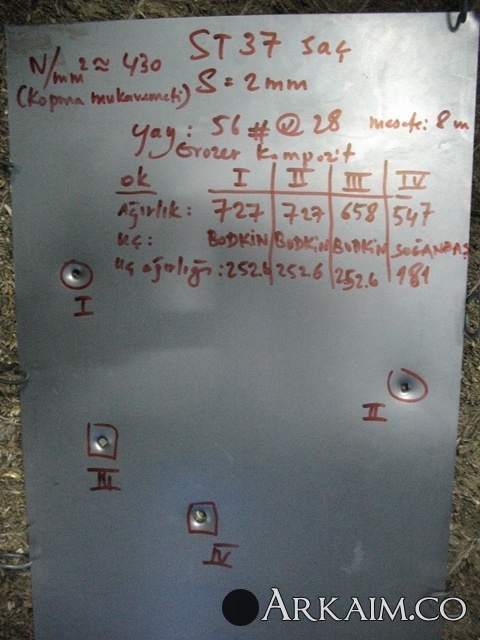 ST 37 saç
N/mm² ≈ 430
(Kopma mukavemeti) S = 2mm
yay: 56 # @ 28 mesafe: 8 m
Grozer Kompozit
ok I II III IV
Ağırlık: 727 727 658 547
uç: BODKİN BODKİN BODKİN SOĞANBAŞ
uç ağırlığı: 252.6 252.6 252.6 181
I
II
III
IV
ARKAIM.CO